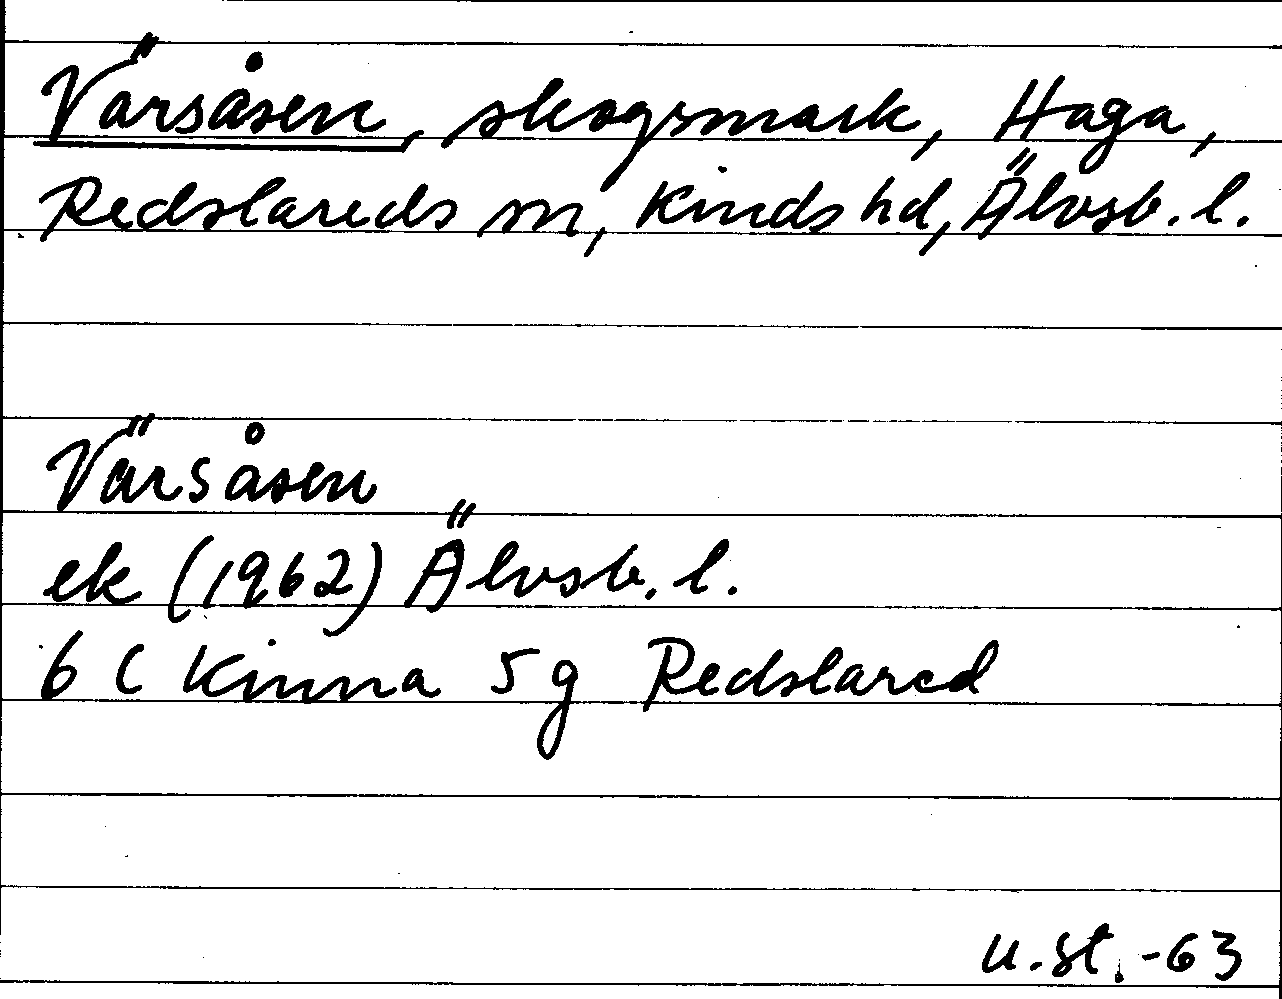 Värsåsen, skogsmark, Haga,
Redslareds sn, Kinds hd, Älvsb. l.
Värsåsen
ek (1962) Älvsb. l.
6 C Kinna 5 g Redslared
u. st. -63